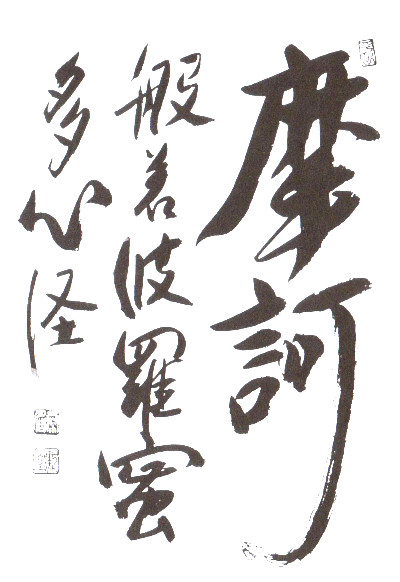 摩訶
般若波羅蜜
多心経